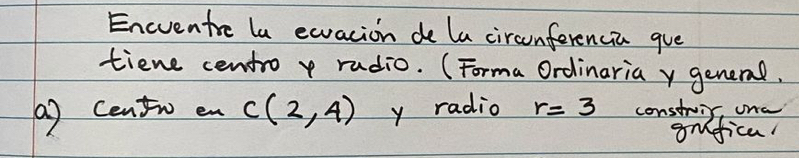 Encuentre la ecuación de la circunferencia que
tiene centro y radio. (Forma Ordinaria y general.
a) Centro en C(2,4) y radio r= 3 construir una
gráfica.